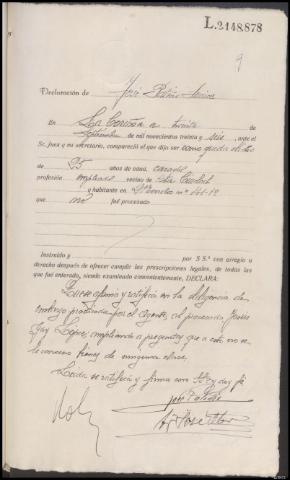 L.2148.878
9
Declaración de José
En La Coruña a treinta de
Septiembre de mil novecientos treinta y seis, ante el
Sr. Juez y mi secretario, compareció el que dijo ser como queda dicho
de 35 años de edad, casado
profesión empleado, vecino de esta Ciudad
y habitante en
que no fué procesado
Instruído y por S. Sª. con arreglo a
derecho después de ofrecer cumplir las prescripciones legales, de todas las
que fué enterado, siendo examinado convenientemente, DECLARA:
Que se afirma y ratifica en la diligencia de
embargo practicada por el Agente, al procesado
López, ampliando a preguntas que a este no se
le conocen bienes de ninguna clase.
Leída se ratifica y firma con SSª doy fé
José
José